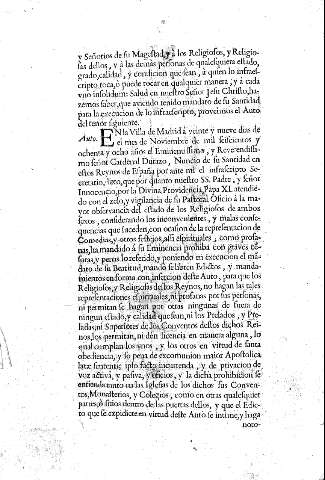 y Señorios de su Magestad, y à los Religiosos, y Religio-
sas dellos, y à las demàs personas de qualesquiera estado,
grado, calidad, y condicion que sean, à quien lo infraes-
cripto toca, ò puede tocar en qualquier manera; y à cada
vno insolidum: Salud en nuestro Señor Jesu Christo, ha-
zemos saber, que aviendo tenido mandato de su Santidad
para la execucion de lo infraescripto, proveimos el Auto
del tenor siguiente.
Auto. EN la Villa de Madrid à veinte y nueve dias de
el mes de Noviembre de mil seiscientos y
ochenta y ocho años el Eminentissimo, y Reverendissi-
mo señor Cardenal Durazo, Nuncio de su Santidad en
estos Reynos de España por ante mi el infraescripto Se-
cretario, dixo, que por quanto nuestro SS. Padre, y señor
Innocencio, por la Divina Providencia, Papa XI. atendié-
do con el zelo, y vigilancia de su Pastoral Oficio à la ma-
yor observancia del estado de los Religiosos de ambos
sexos, considerando los inconvenientes, y malas conse-
quencias que suceden, con ocasion de la representacion de
Comedias, y otros festejos, assi espirituales, como profa-
nas, ha mandado à su Eminencia prohiba con graves pe-
nas, y peros lo referido, y poniendo en execucion el má-
dato de su Beatitud, mandò se libren Edictos, y manda-
mientos en forma con insercion deste Auto, para que los
Religiosos, y Religiosas destos Reynos, no hagan las tales
representaciones espirituales, ni profanas por sus personas,
ni permitan se hagan por otras ningunas de fuera de
ningun estado, y calidad que sean, ni los Prelados, y Pre-
ladas, ni Superiores de los Conventos destos dichos Rei-
nos, los permitan, ni dèn licencia en manera alguna, lo
qual cumplan los vnos, y los otros en virtud de santa
obediencia, y so pena de excomunion maior Apostolica
latæ sententiæ ipso facto incurrenda, y de privacion de
voz activa, y pasiva, y oficios, y la dicha prohibicion se
entienda tanto en las Iglesias de los dichos sus Conven-
tos, Monasterios, y Colegios, como en otras qualesquier
partes, ò sitios dentro de las puertas dellos, y que el Edic-
to que se expidiere en virtud deste Auto se intime, y haga
noto-